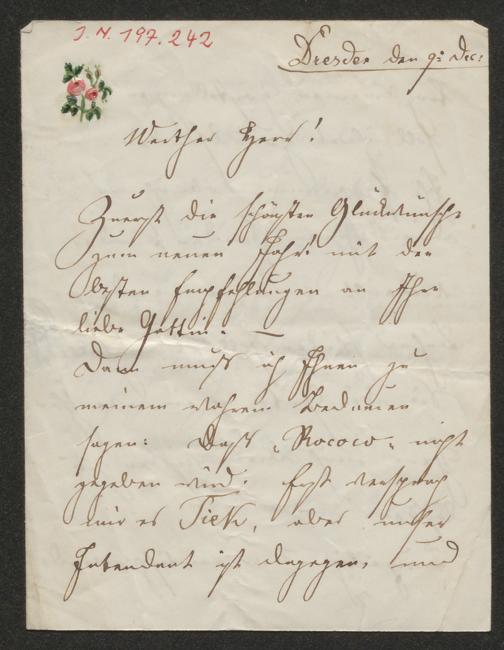 I. N. 197.242
Dresden den 9t Dec:
Werther Herr!
Zuerst die schönsten Glückwünsche
zum neuen Jahr! mit den
besten Empfehlungen an Ihre
liebe Gattin. —
Dann muß ich Ihnen zu
meinem wahren Bedauern
sagen: Daß „Rococo" nicht
gegeben wird. Erst versprach
mir es Tieck, aber unser
Intendant ist dagegen, und